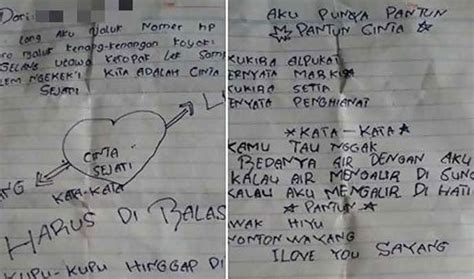 Dari:
Long Aku Njaluk Nomer HP
njaluk kenang-kenangan koyok
GELANG utawa Ketopak Lek
NGEKEK'I KITA ADALAH CINTA
SEJATI
CINTA
SEJATI
KATA-KATA
HARUS DI BALAS
KUPU-KUPU HINGGAP DI
AKU PUNYA PANTUN
PANTUN CINTA
KUKIRA ALPUKAT
ERNYATA MARKISA
KUKIRA SETIA
ENYATA PENGHIANAT
KATA-KATA
KAMU TAU NGGAK
BEDANYA AIR DENGAN AKU
KALAU AIR MENGALIR DI SUNG
KALAU AKU MENGALIR DI HATI
PANTUN
WAK HIYU
NONTON WAYANG
I LOVE YOU SAYANG